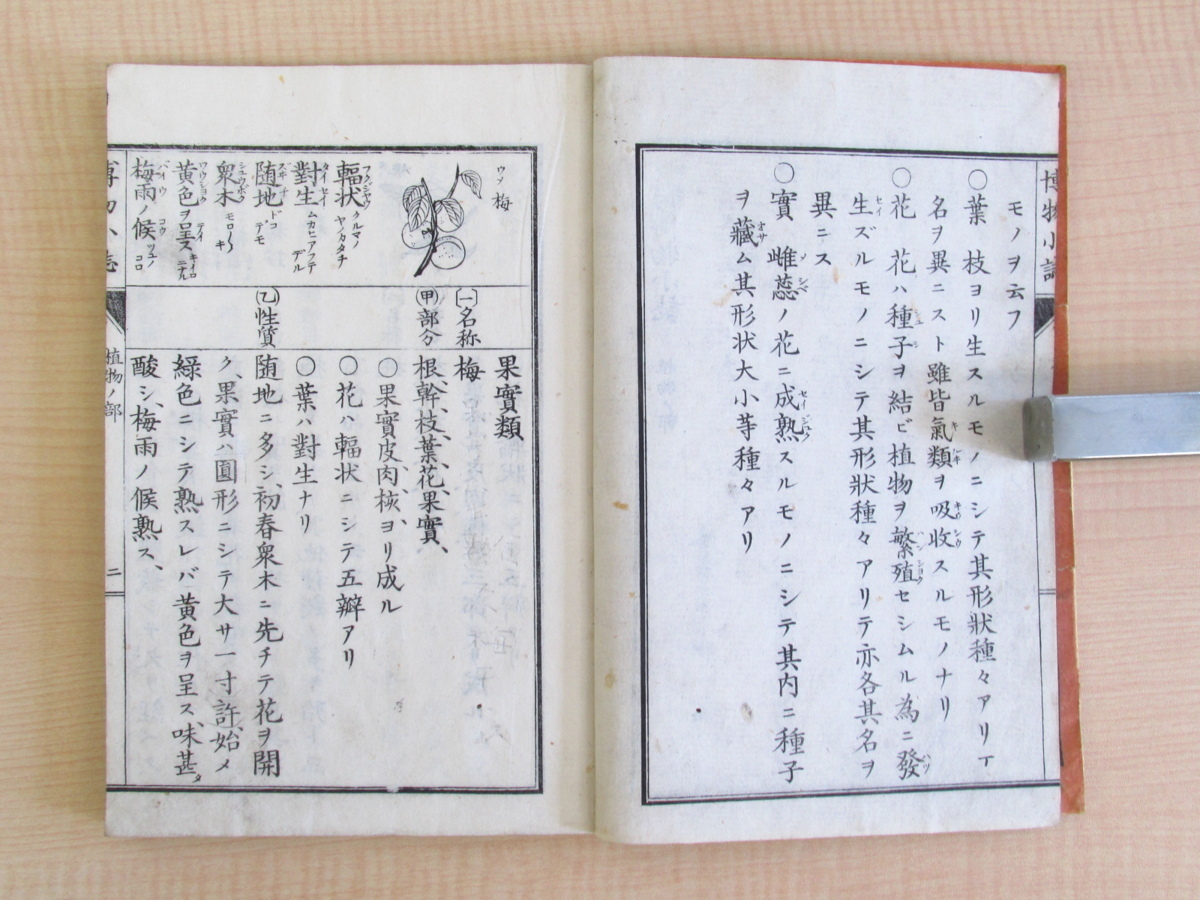 博物小誌
モノヲ云フ
○葉 枝ヨリ生スルモノニシテ其形狀種々アリテ
名ヲ異ニスト雖皆氣類ヲ吸收スルモノナリ
○花 花ハ種子ヲ結ビ植物ヲ繁殖セシムル為ニ發
生ズルモノニシテ其形狀種々アリテ亦各其名ヲ
異ニス
○實 雌蕊ノ花ニ成熟スルモノニシテ其内ニ種子
ヲ藏ム其形状大小等種々アリ
梅
輻状 クルマノヤノカタチ
對生 ムカヒアフテデル
随地 ドコデモ
衆木 モロ〱キ
黄色ヲ呈ス キイロニナル
梅雨ノ候 ツユノコロ
㈠名称
㊙甲部分
乙性質
果實類
梅
根、幹、枝、葉、花、果實、
○果實皮肉核ヨリ成ル
○花ハ輻状ニシテ五瓣アリ
○葉ハ對生ナリ
随地ニ多シ、初春衆木ニ先チテ花ヲ開
ク、果實ハ圓形ニシテ大サ一寸許、始メ
綠色ニシテ熟スレバ黄色ヲ呈ス、味甚ダ
酸シ、梅雨ノ候熟ス、
植物ノ部
二